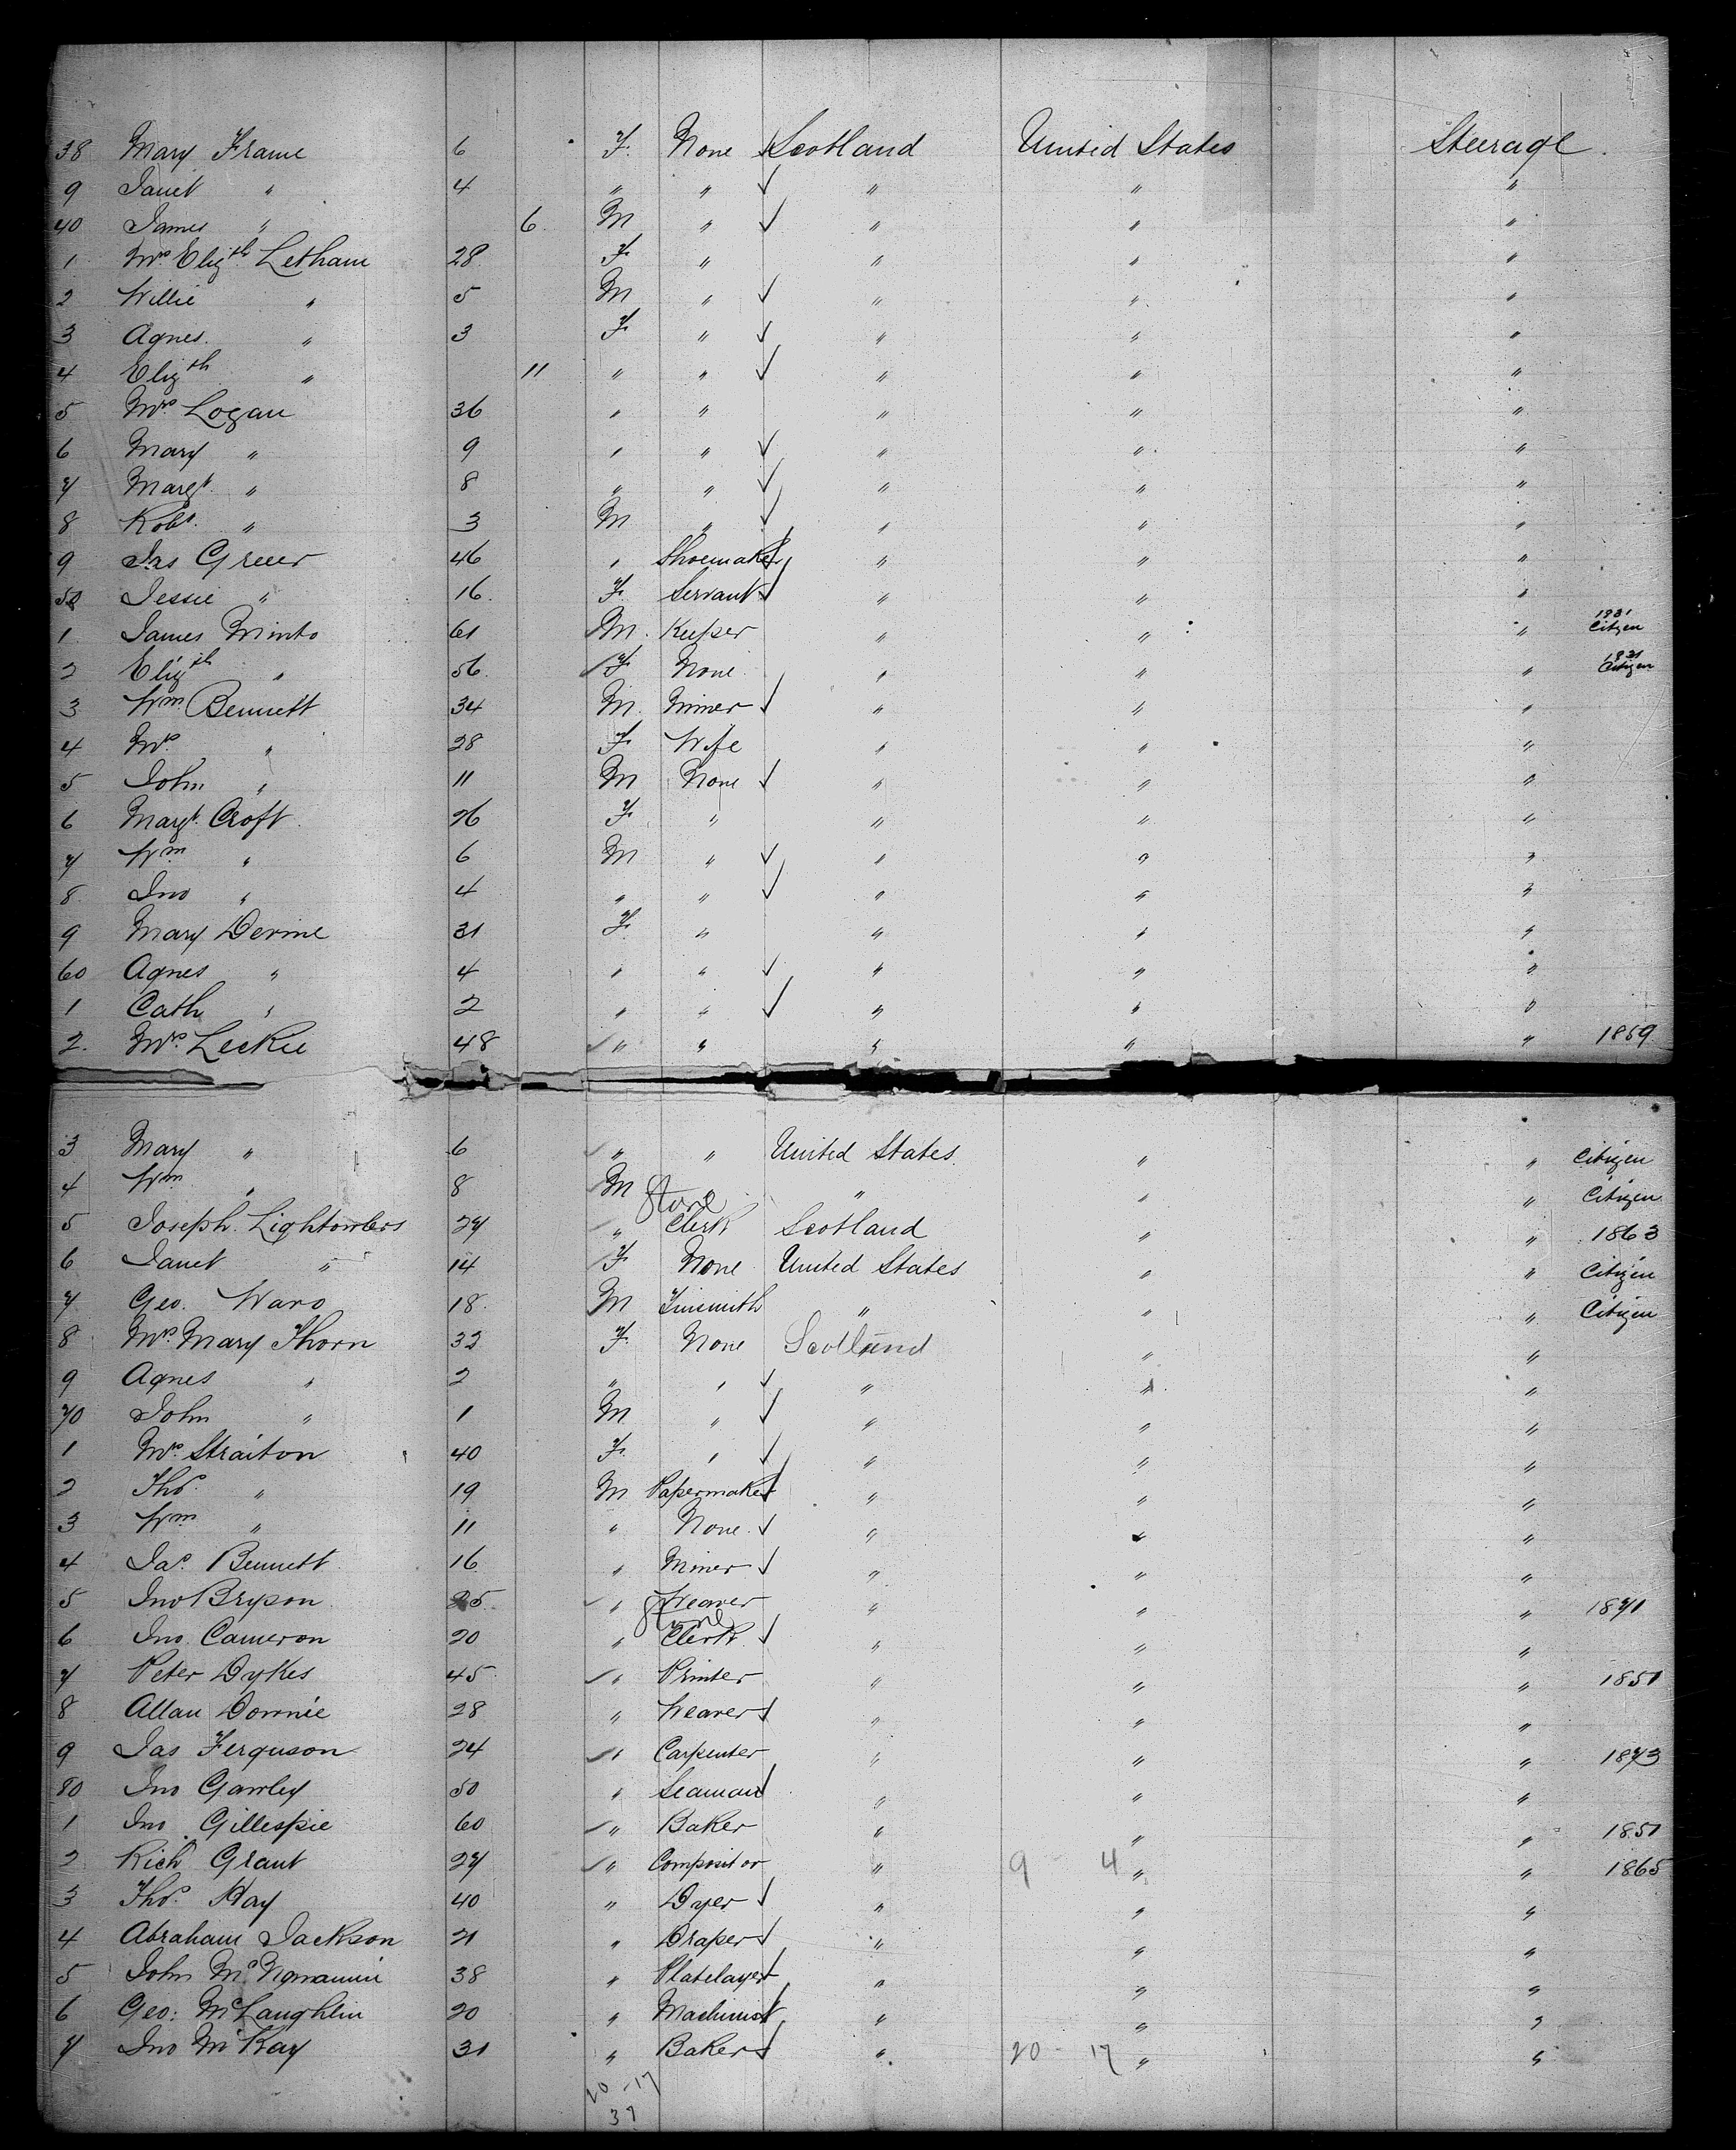 38 Mary Frame 6 F. None Scotland United States Steerage.
9 Janet " 4 " " " " "
40 James " 6. M " " " "
1 Mrs. Elizth Letham 28 F " " " "
2 Willie " 5 M " " " "
3 Agnes. " 3 F " " " "
4 Elizth " 11 " " " " "
5 Mrs. Logan 36 " " " " "
6 Mary " 9 " " " " "
7 Margt. " 8 " " " " "
8 Robt. " 3 M " " " "
9 Jas Greer 46 " Shoemaker " " "
50 Jessie " 16. F. Servant " " "
1 James Minto 61 M. Keeper " " " 1881 Citizen
2 Elizth " 56. F None " " " 1881 Citizen
3 Wm. Bennett 34 M. Miner " " "
4 Mrs. " 28 F Wife " " "
5 John " 11 M None " " "
6 Margt. Croft. 26 F " " " "
7 Wm " 6 M " " " "
8. Jno " 4 " " " " "
9 Mary Devine 31 F " " " "
60 Agnes " 4 " " " " "
1 Cath " 2 " " " " "
2. Mrs. Leckie 48 " " " " " 1859.
3 Mary " 6 " " United States. " " Citizen
4 Wm " 8 M " " " " Citizen
5 Joseph. Lightowlers 27 " Store Clerk Scotland " " 1863
6 Janet " 14 F None United States " " Citizen
7 Geo. Ward 18. M Tinsmith " " " Citizen
8 Mrs. Mary Thorn 32 F. None Scotland " "
9 Agnes " 2 " " " " "
70 John " 1 M " " " "
1 Mrs. Straiton 40 F. " " " "
2 Thos. " 19 M Papermaker " " "
3 Wm " 11 " None. " " "
4 Jas. Bennett. 16 " Miner " " "
5 Jno Bryson 25. " Weaver " " " 1871
6 Jno. Cameron 20 " Store Clerk. " " "
7 Peter Dykes 45 " Printer " " " 1851
8 Allan Downie 28 " Weaver " " "
9 Jas Ferguson 24 " Carpenter " " " 1873
80 Jno Gawley 50 " Seaman " " "
1 Jno Gillespie 60 " Baker " " " 1851
2 Rich Grant 27 " Compositor " 9 4 " " 1865
3 Thos. Hay 40 " Dyer " " "
4 Abraham Jackson 21 " Draper " " "
5 John 38 " Platelayer " " "
6 Geo: McLaughlin 20 " Machinist " " "
7 Jno McKay 31 " Baker " 20 - 17 " "
20 - 17
37